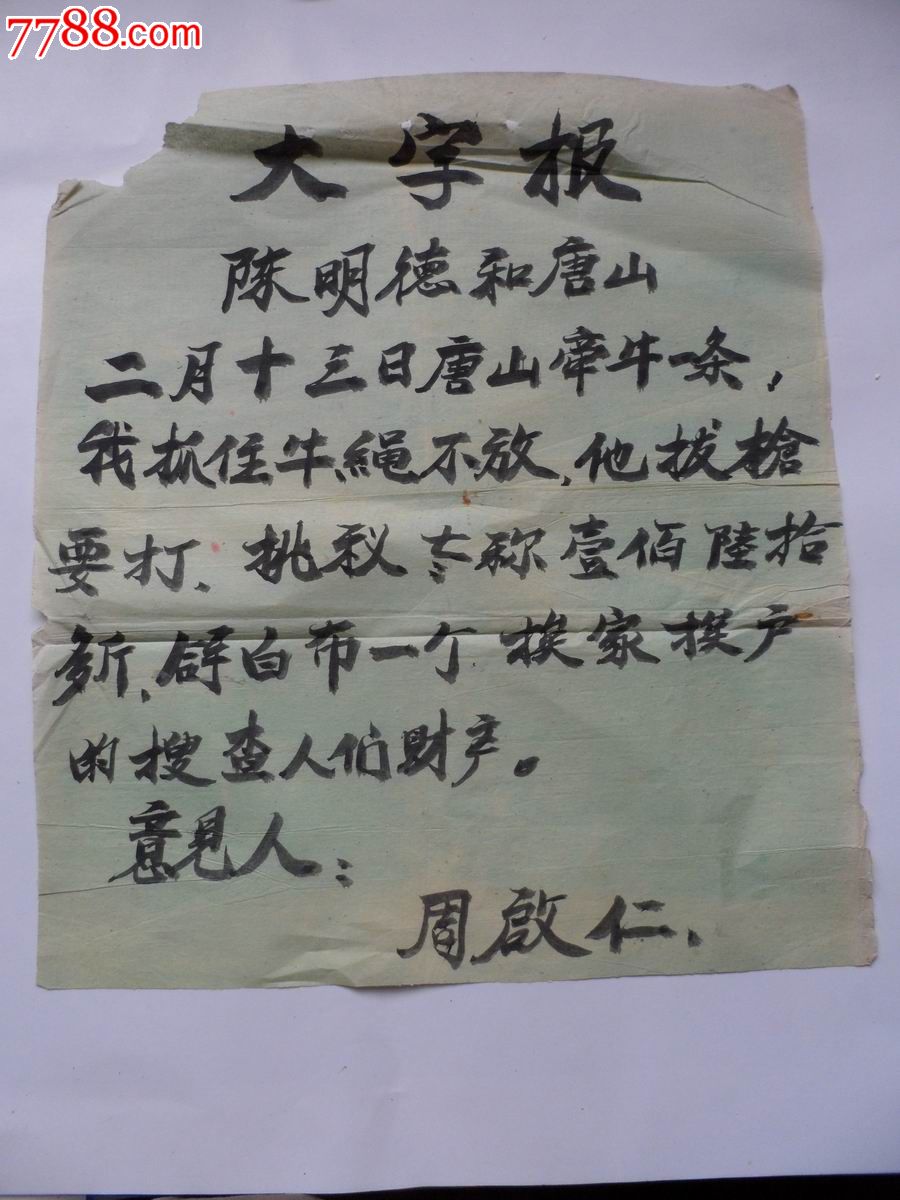 7788.com
大字报
陈明德和唐山
二月十三日唐山牵牛一条，
我抓住牛绳不放，他拔槍
要打、挑我 称壹佰陸拾
多斤，白布一个 挨家挨户
的搜查人们财产。
意见人：
周啟仁、